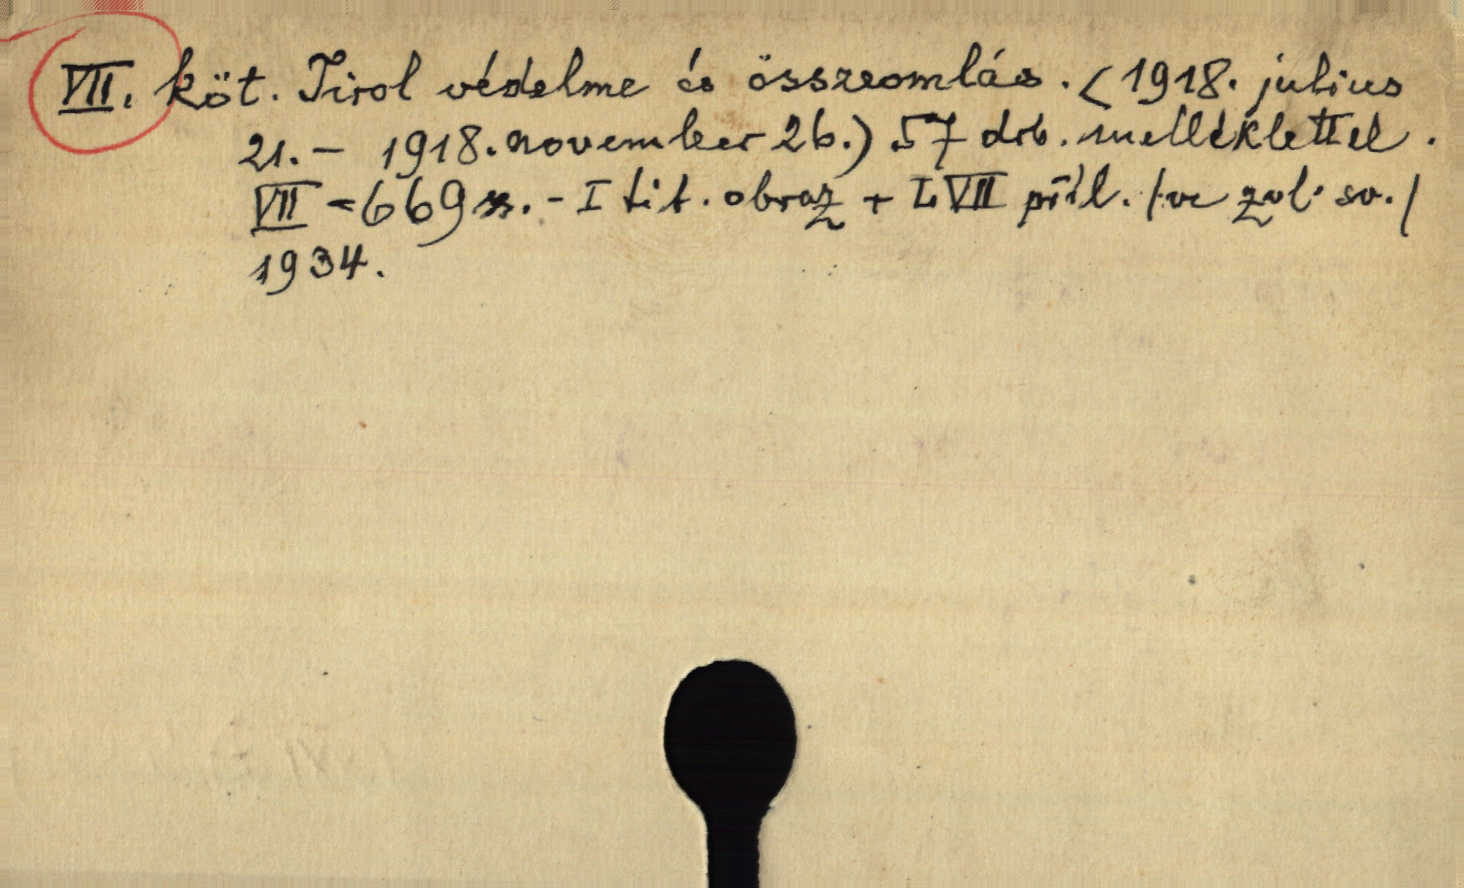 VII. köt. Tirol védelme és összeomlás. (1918. julius
21. - 1918. november 26.) 57 drb. melléklettel.
VII - 669 s. - I tit. obraz + LVII příl. /ve zvl. sv./
1934.